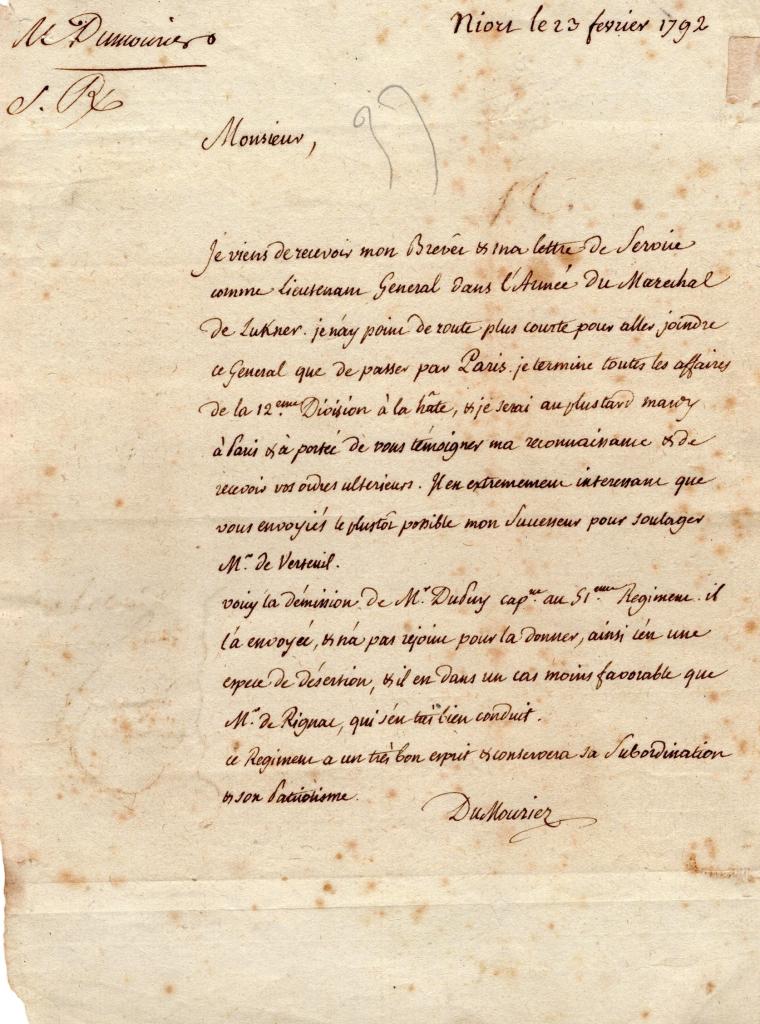 Mr Dumourier
Niort le 23 fevrier 1792
S. R
Monsieur,
Je viens de recevoir mon Brevêt & ma lettre de Service
comme Lieutenant General dans l'Armée du Marechal
de Lukner. je n'ay point de route plus courte pour aller joindre
ce General que de passer par Paris. je termine toutes les affaires
de la 12.eme Division à la hâte, & je serai au plustard mardy
à Paris & à portée de vous témoigner ma reconnaissance & de
recevoir vos ordres ulterieurs. Il est extremement interessant que
vous envoyiés le plustôt possible mon Successeur pour soulager
Mr. de Verteuil.
voicy la démission de Mr. Dupuy capne. au 51.eme Regiment. il
l'a envoyée, & n'a pas rejoint pour la donner, ainsi c'est une
espece de désertion, & il est dans un cas moins favorable que
Mr. de Rignac, qui s'est très bien conduit.
ce Regiment a un très bon esprit & conservera sa Subordination
& son Patriotisme.
DuMouriez